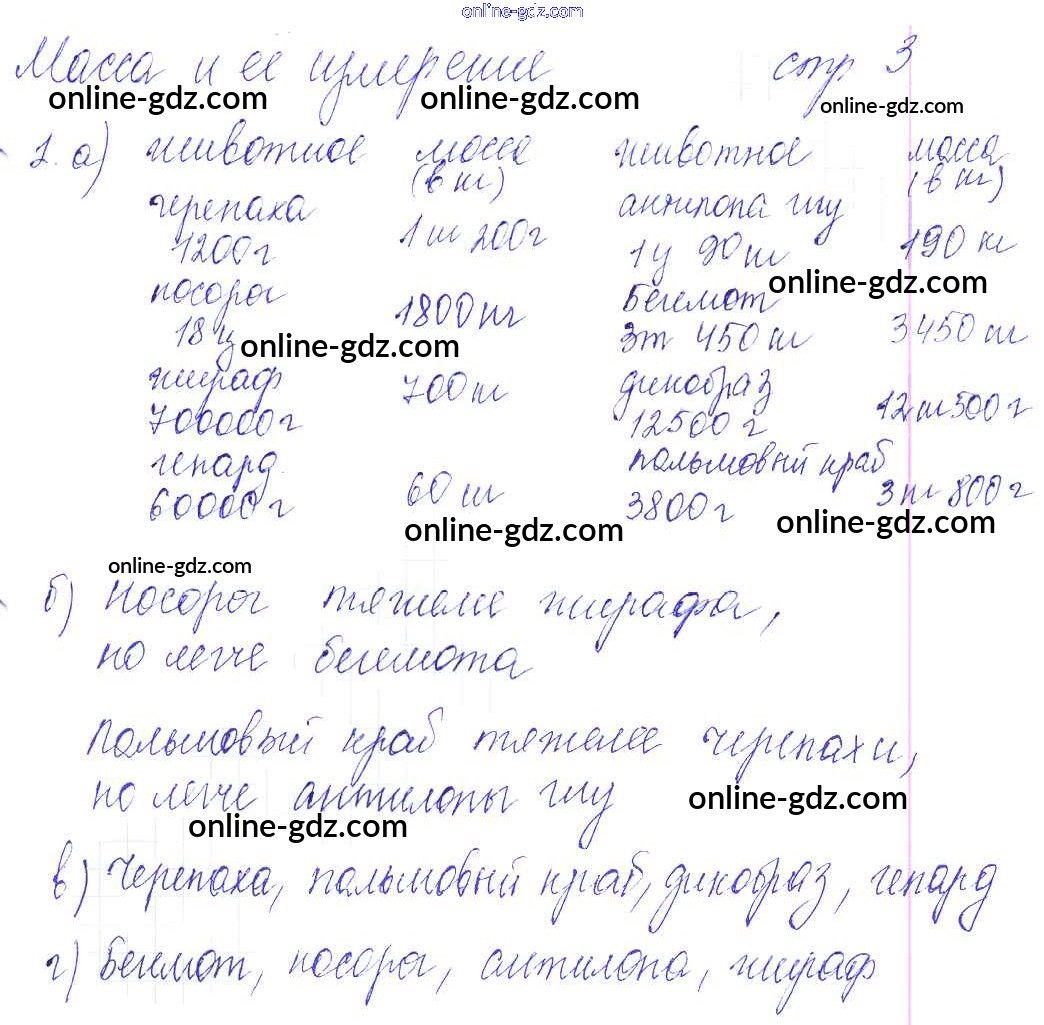 online-gdz.com
Масса и её измерение стр 3
online-gdz.com online-gdz.com online-gdz.com
1. а) животное масса животное масса
(в кг) (в кг)
черепаха антилопа гну
1200г 1 кг 200г 1ц 90 кг 190 кг
носорог бегемот online-gdz.com
18 ц 1800 кг 3т 450 кг 3450 кг
online-gdz.com
жираф 700 кг дикобраз
700000г 12500 г 12 кг 500 г
гепард пальмовый краб
60000 г 60 кг 3800 г 3 кг 800 г
online-gdz.com online-gdz.com
online-gdz.com
б) Носорог тяжелее жирафа,
но легче бегемота
Пальмовый краб тяжелее черепахи,
но легче антилопы гну online-gdz.com
online-gdz.com
в) Черепаха, пальмовый краб, дикобраз, гепард
г) Бегемот, носорог, антилопа, жираф